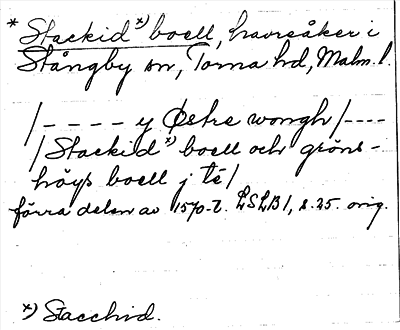 * Stackid *) boell, havreåker i
Stångby sn, Torna hd, Malm. l.
/- - - - y Østre wongh/- - - -
/Stackid *) boell och gröns-
höys boell j té/
förra delen av 1570-t. LSLB1, s. 25. orig.
*) Stacchid.